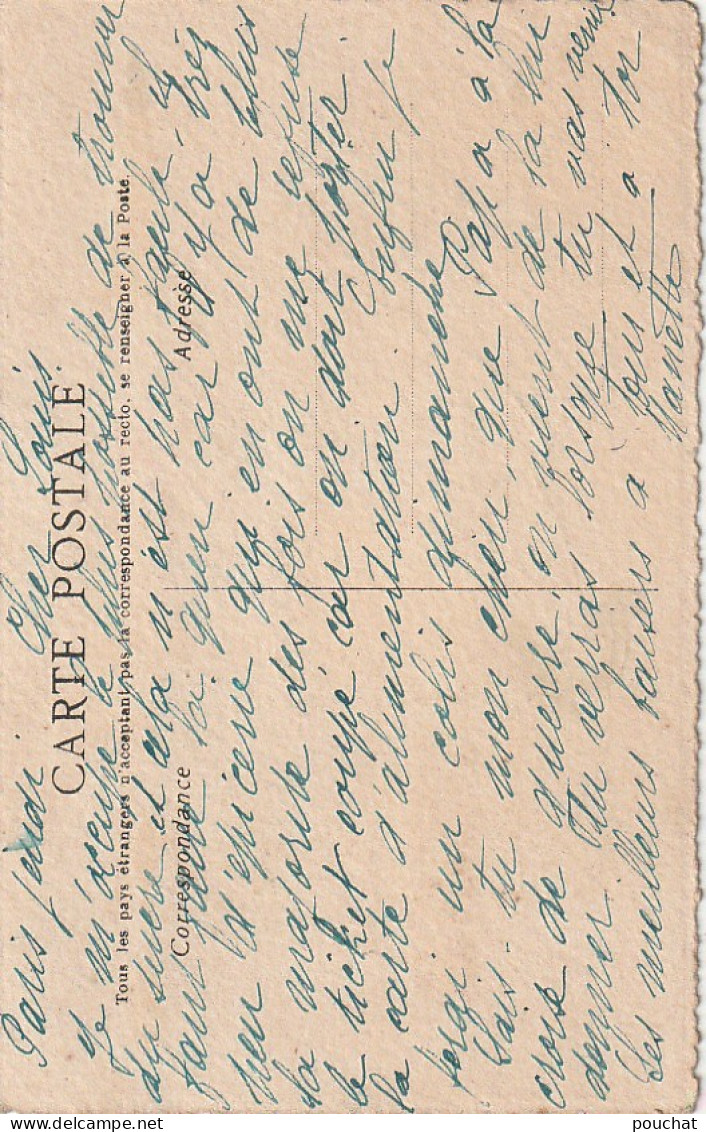 Paris jeudi Cher Louis.
CARTE POSTALE
Je m'occupe le plus possible de trouver
Tous les pays étrangers n'acceptant pas la correspondance au recto, se renseigner à la Poste.
du sucre et cela n'est pas facile, il
Correspondance
Adresse
faut faire qu'en car y a très
peu d'épicerie qui en ont de plus
la majorité des fois on me refuse
le ticket coupé car on doit porter
la carte d'alimentation. Enfin je
ferai un colis dimanche
Sais-tu mon cheri que Papa a la
croix de guerre, on vient de la lui
donner. Tu verras lorsque tu vas venir.
Les meilleurs baisers a tous et a toi
Nanette
pouchat